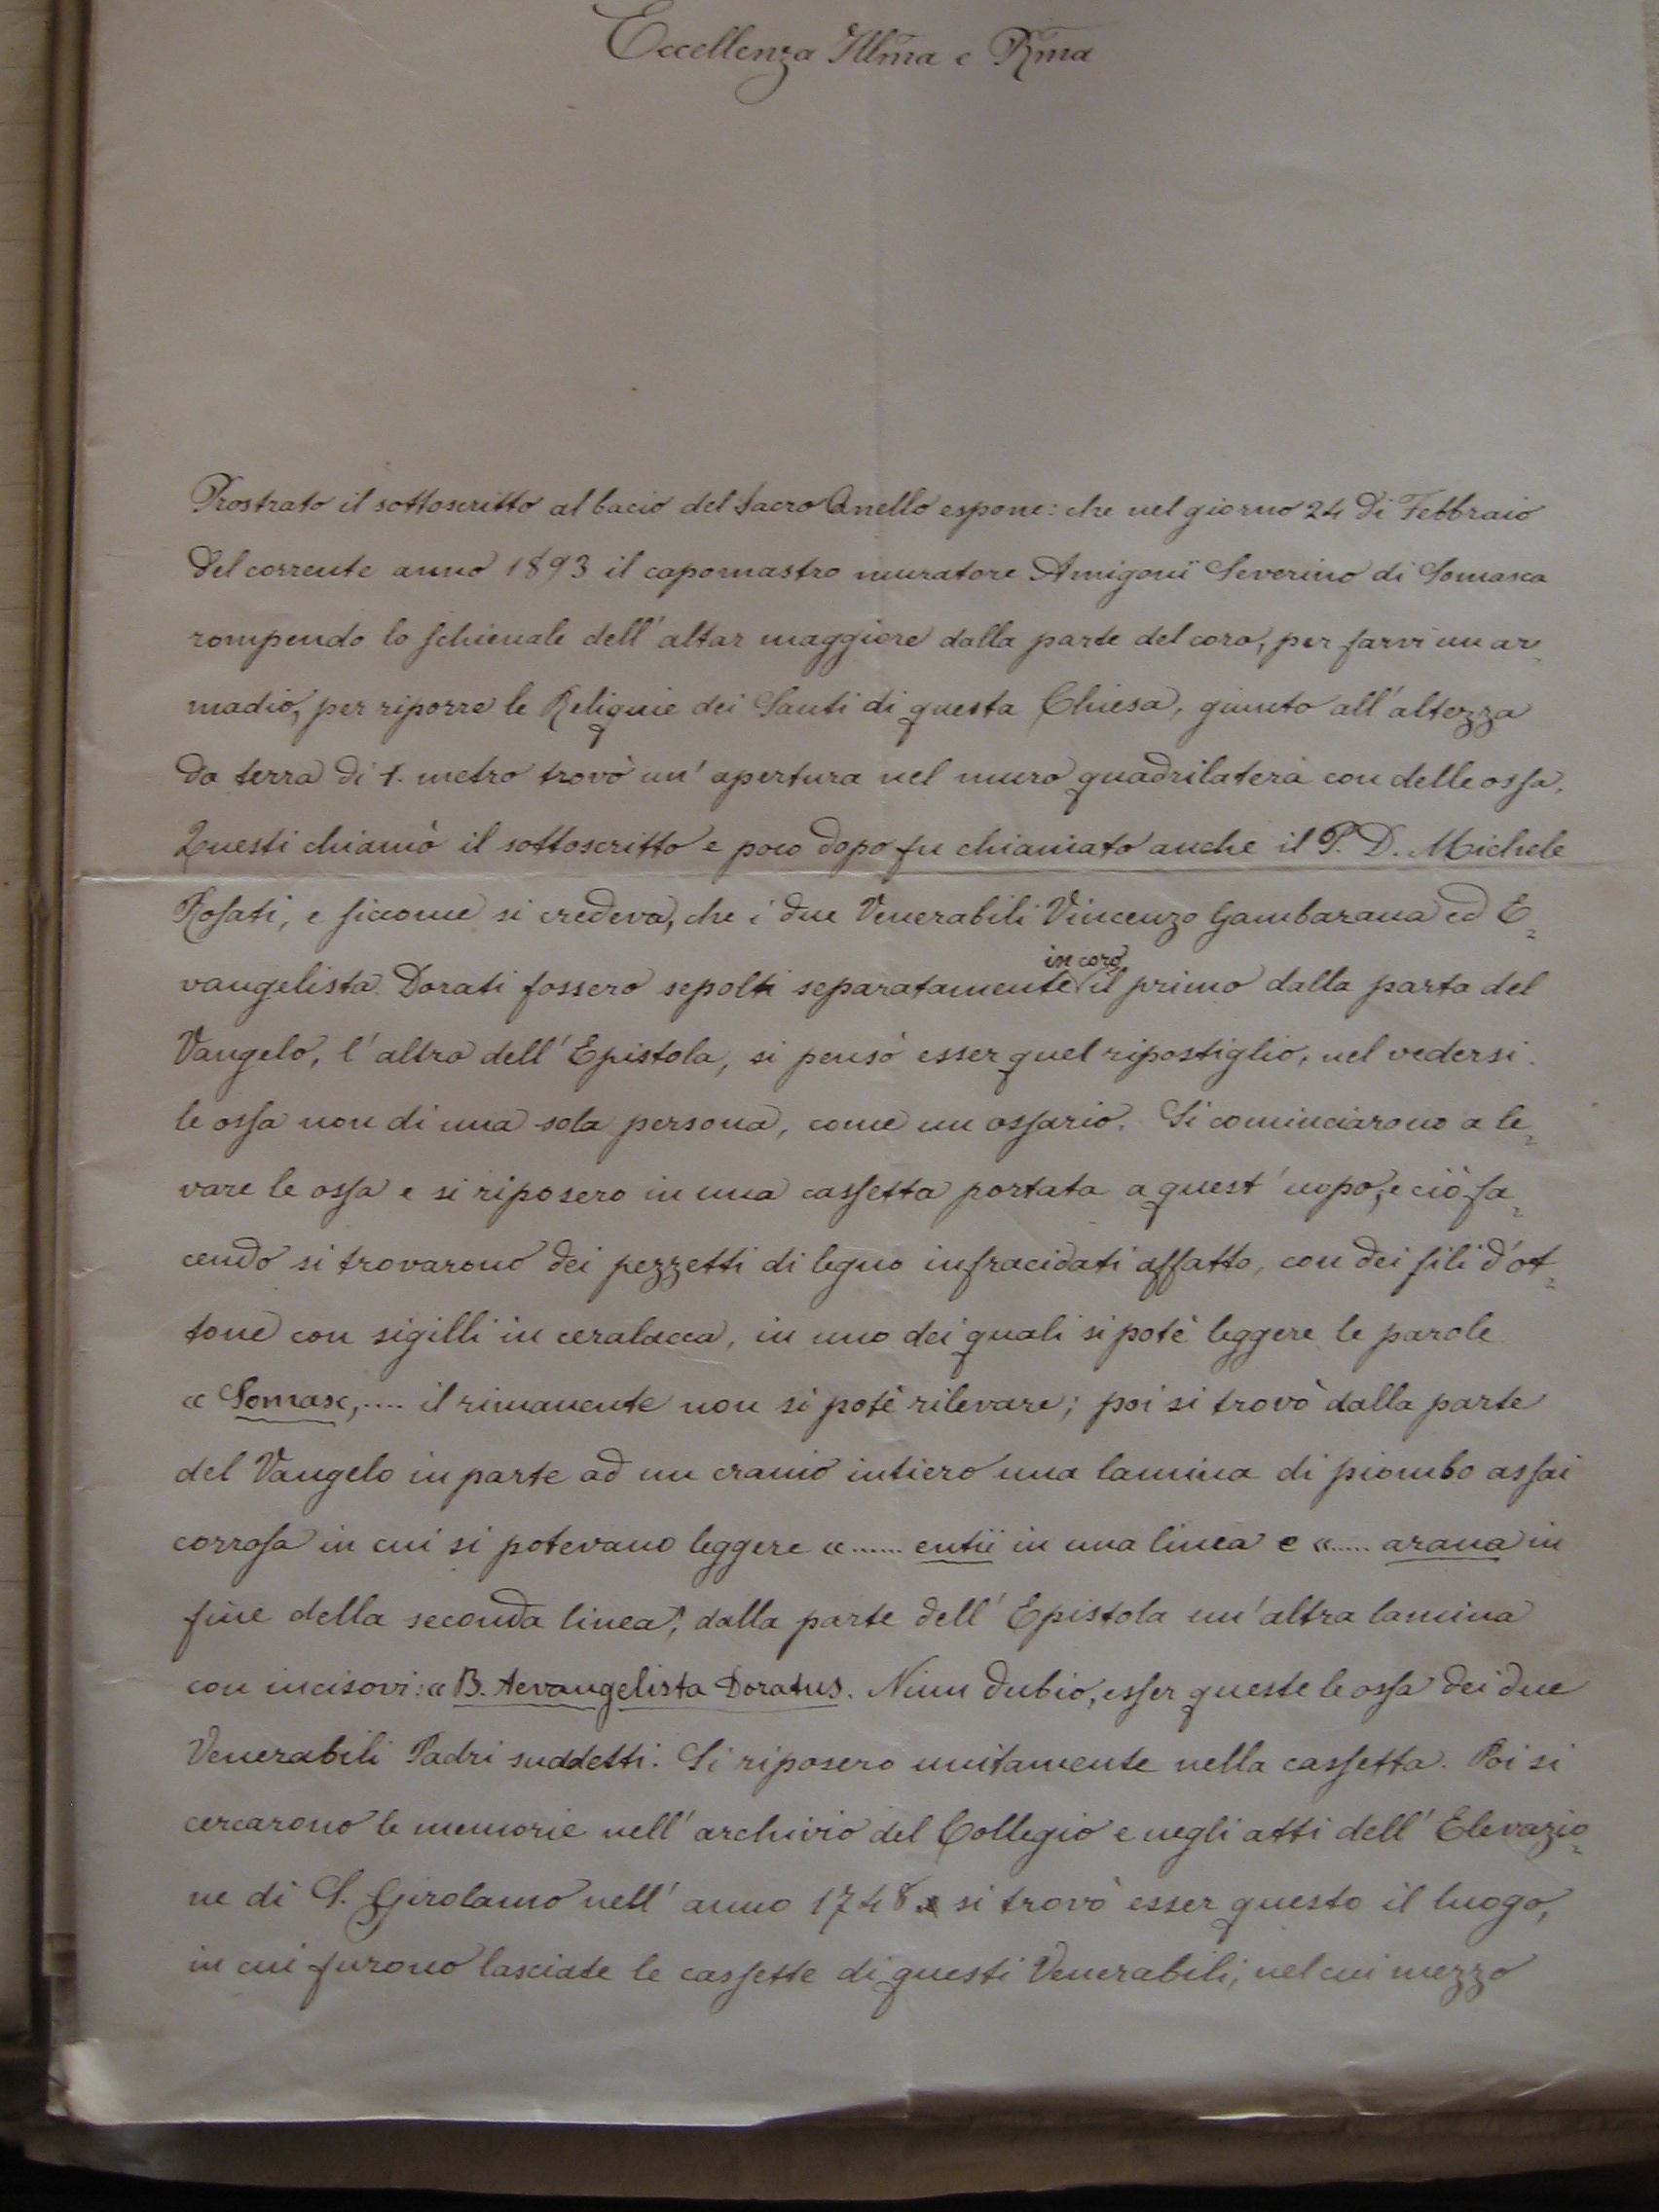 Eccellenza Illma e Rma
Prostrato il sottoscritto al bacio del Sacro Anello espone: che nel giorno 24 di Febbraio
del corrente anno 1893 il capomastro muratore Amigoni Severino di Somasca
rompendo lo schienale dell'altar maggiore dalla parte del coro, per farvi un ar-
madio, per riporre le Reliquie dei Santi di questa Chiesa, giunto all'altezza
da terra di 1. metro trovò un'apertura nel muro quadrilatera con delle ossa.
Questi chiamò il sottoscritto e poco dopo fu chiamato anche il P. D. Michele
Rosati, e siccome si credeva, che i due Venerabili Vincenzo Gambarana ed E-
in coro
vangelista Dorati fossero sepolti separatamente il primo dalla parte del
Vangelo, l'altro dell'Epistola, si pensò esser quel ripostiglio, nel vedersi
le ossa non di una sola persona, come un ossario. Si cominciarono a le-
vare le ossa e si riposero in una cassetta portata a quest'uopo, e ciò fa-
cendo si trovarono dei pezzetti di legno infracidati affatto, con dei fili d'ot-
tone con sigilli in ceralacca, in uno dei quali si potè leggere le parole
« Somasc,.... il rimanente non si potè rilevare; poi si trovò dalla parte
del Vangelo in parte ad un cranio intiero una lamina di piombo assai
corrosa in cui si potevano leggere «...... entii in una linea e «..... arana in
fine della seconda linea; dalla parte dell'Epistola un'altra lamina
con incisovi: « B. Aevangelista Doratus. Niun dubio, esser queste le ossa dei due
Venerabili Padri suddetti. Si riposero unitamente nella cassetta. Poi si
cercarono le memorie nell'archivio del Collegio e negli atti dell'Elevazio-
ne di S. Girolamo nell'anno 1748 si trovò esser questo il luogo,
in cui furono lasciate le cassette di questi Venerabili, nel cui mezzo